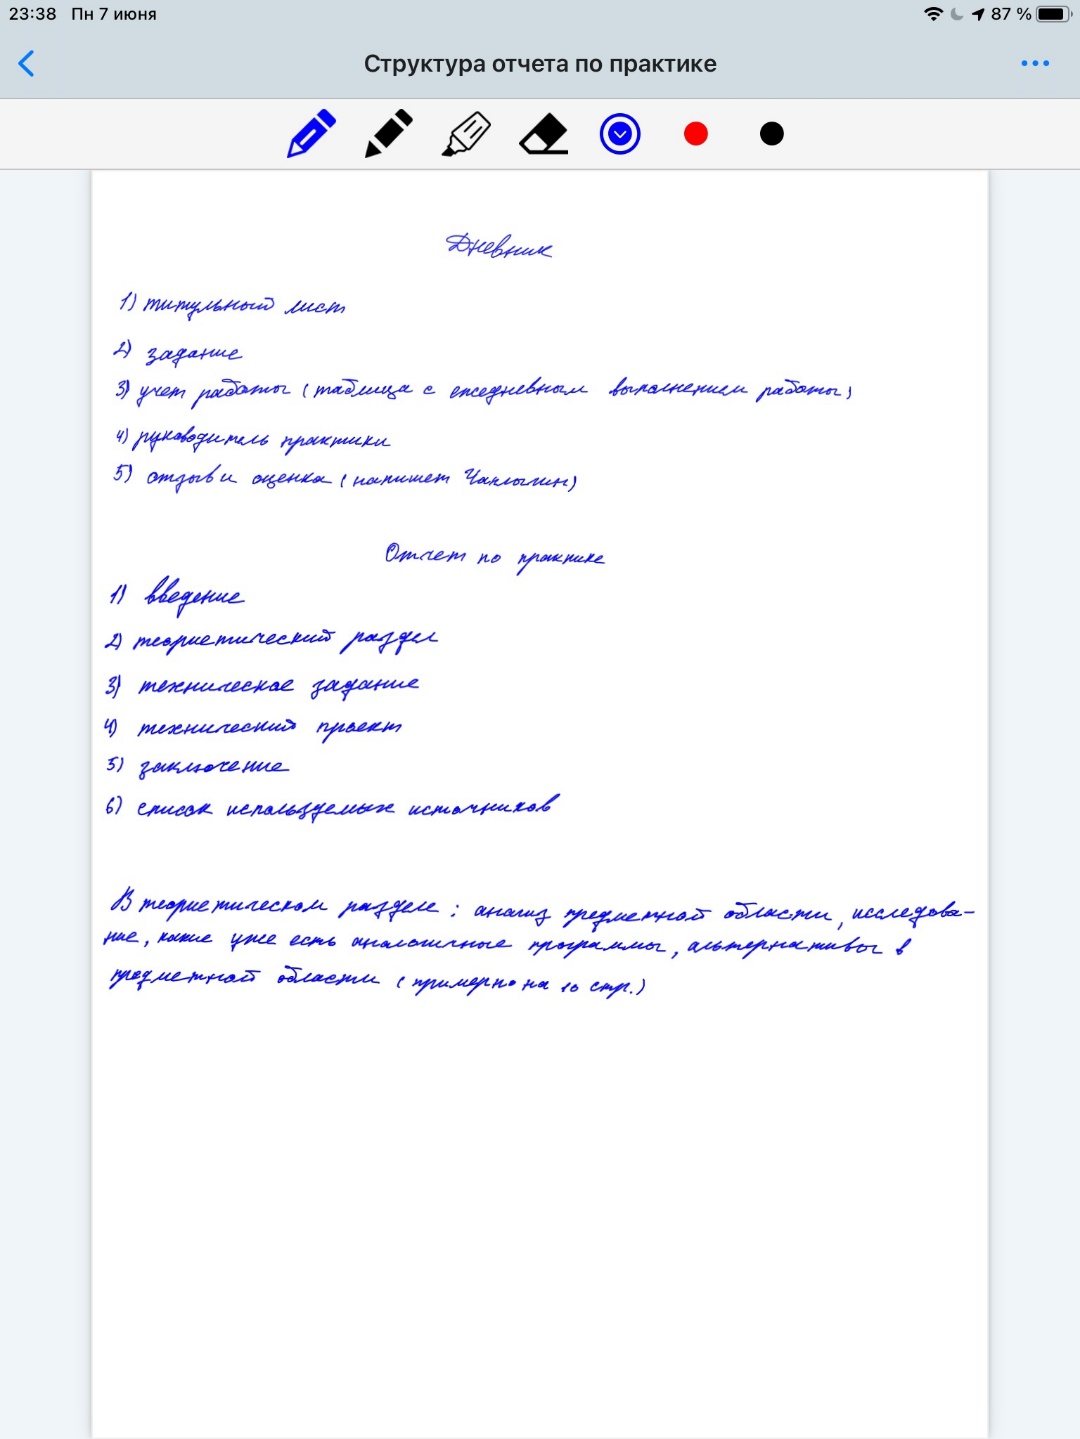 23:38 Пн 7 июня 87 %
Структура отчета по практике
Дневник
1) титульный лист
2) задание
3) учет работы (таблица с ежедневным выполнением работы)
4) руководитель практики
5) отзыв и оценка (напишет Чаплыгин)
Отчет по практике
1) введение
2) теоретический раздел
3) техническое задание
4) технический проект
5) заключение
6) список используемых источников
В теоретическом разделе: анализ предметной области, исследова-
ние, какие уже есть аналогичные программы, альтернативы в
предметной области (примерно на 10 стр.)